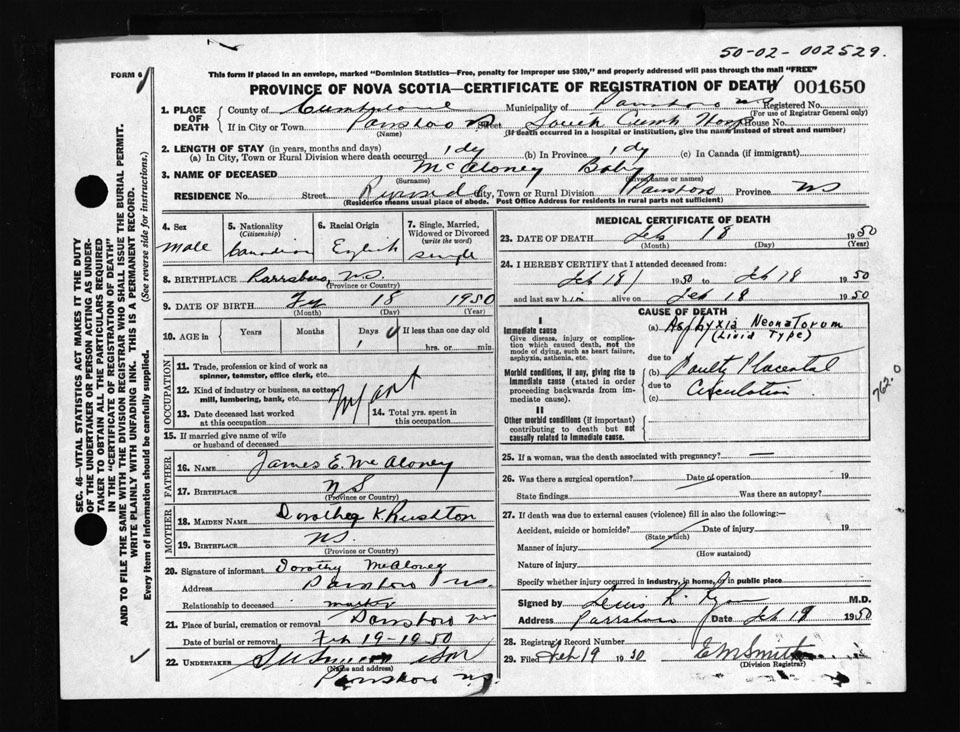 50-02-002529.
FORM 6
This form if placed in an envelope, marked "Dominion Statistics—Free, penalty for improper use $300," and properly addressed will pass through the mail "FREE"
PROVINCE OF NOVA SCOTIA—CERTIFICATE OF REGISTRATION OF DEATH 001650
1. PLACE OF DEATH County of Cumberland Municipality of Parrsboro NS Registered No.
(For use of Registrar General only)
If in City or Town Parrsboro NS Street South Cumb Hosp House No.
(Name) (If death occurred in a hospital or institution, give the name instead of street and number)
2. LENGTH OF STAY (in years, months and days)
(a) In City, Town or Rural Division where death occurred 1 dy (b) In Province 1 dy (c) In Canada (if immigrant)
3. NAME OF DECEASED McAloney Baby
(Surname) (Given name or names)
RESIDENCE No. Street City, Town or Rural Division Parrsboro Province NS
(Residence means usual place of abode. Post Office Address for residents in rural parts not sufficient)
4. Sex
Male
5. Nationality
(Citizenship)
Canadian
6. Racial Origin
English
7. Single, Married, Widowed or Divorced
(write the word)
single
8. BIRTHPLACE Parrsboro, NS.
(Province or Country)
9. DATE OF BIRTH 18 1950
(Month) (Day) (Year)
10. AGE in Years Months Days If less than one day old
1 hrs. or min.
OCCUPATION
11. Trade, profession or kind of work as
spinner, teamster, office clerk, etc.
12. Kind of industry or business, as cotton-
mill, lumbering, bank, etc. Infant
13. Date deceased last worked
at this occupation
14. Total yrs. spent in
this occupation
15. If married give name of wife
or husband of deceased
FATHER
16. NAME James E. McAloney
17. BIRTHPLACE NS
(Province or Country)
MOTHER
18. MAIDEN NAME Dorothea K Rushton
19. BIRTHPLACE NS.
(Province or Country)
20. Signature of informant Dorothy McAloney
Address Parrsboro NS.
Relationship to deceased mother
21. Place of burial, cremation or removal Parrsboro NS
Date of burial or removal Feb 19-1950
22. UNDERTAKER Son
(Name and address)
Parrsboro NS.
MEDICAL CERTIFICATE OF DEATH
23. DATE OF DEATH Feb 18 1950
(Month) (Day) (Year)
24. I HEREBY CERTIFY that I attended deceased from:
Feb 18 1950 to Feb 18 1950
and last saw him alive on Feb 18 1950
CAUSE OF DEATH
I
Immediate cause
Give disease, injury or complica-
tion which caused death, not the
mode of dying, such as heart failure,
asphyxia, asthenia, etc.
(a) Asphyxia Neonatorum
(Livid Type)
due to
Morbid conditions, if any, giving rise to
immediate cause (stated in order
proceeding backwards from im-
mediate cause).
(b) Faulty Placental
due to
(c) Circulation
762.0
II
Other morbid conditions (if important)
contributing to death but not
causally related to immediate cause.
25. If a woman, was the death associated with pregnancy? —
26. Was there a surgical operation? Date of operation 19
State findings Was there an autopsy?
27. If death was due to external causes (violence) fill in also the following:—
Accident, suicide or homicide? Date of injury 19
(State which)
Manner of injury
(How sustained)
Nature of injury
Specify whether injury occurred in industry, in home, or in public place
Signed by M.D.
Address Parrsboro Date Feb 19 1950
28. Registrar's Record Number
29. Filed Feb 19 1950 E M Smith
(Division Registrar)
SEC. 46—VITAL STATISTICS ACT MAKES IT THE DUTY
OF THE UNDERTAKER OR PERSON ACTING AS UNDER-
TAKER TO OBTAIN ALL THE PARTICULARS REQUIRED
IN THE "CERTIFICATE OF REGISTRATION OF DEATH"
AND TO FILE THE SAME WITH THE DIVISION REGISTRAR WHO SHALL ISSUE THE BURIAL PERMIT.
WRITE PLAINLY WITH UNFADING INK. THIS IS A PERMANENT RECORD.
Every item of information should be carefully supplied. (See reverse side for instructions.)